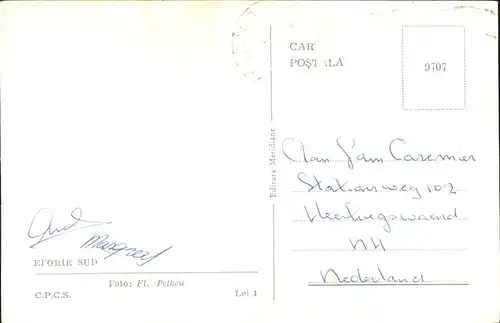 CAR
POŞT LĂ
9707
Editura Meridiane
Aan Fam Caremier
Stationsweg 102
Heerhugowaard
NH
Nederland
Margreet
EFORIE SUD
Foto: Fl. Pethcu
C.P.C.S.
Lei 1